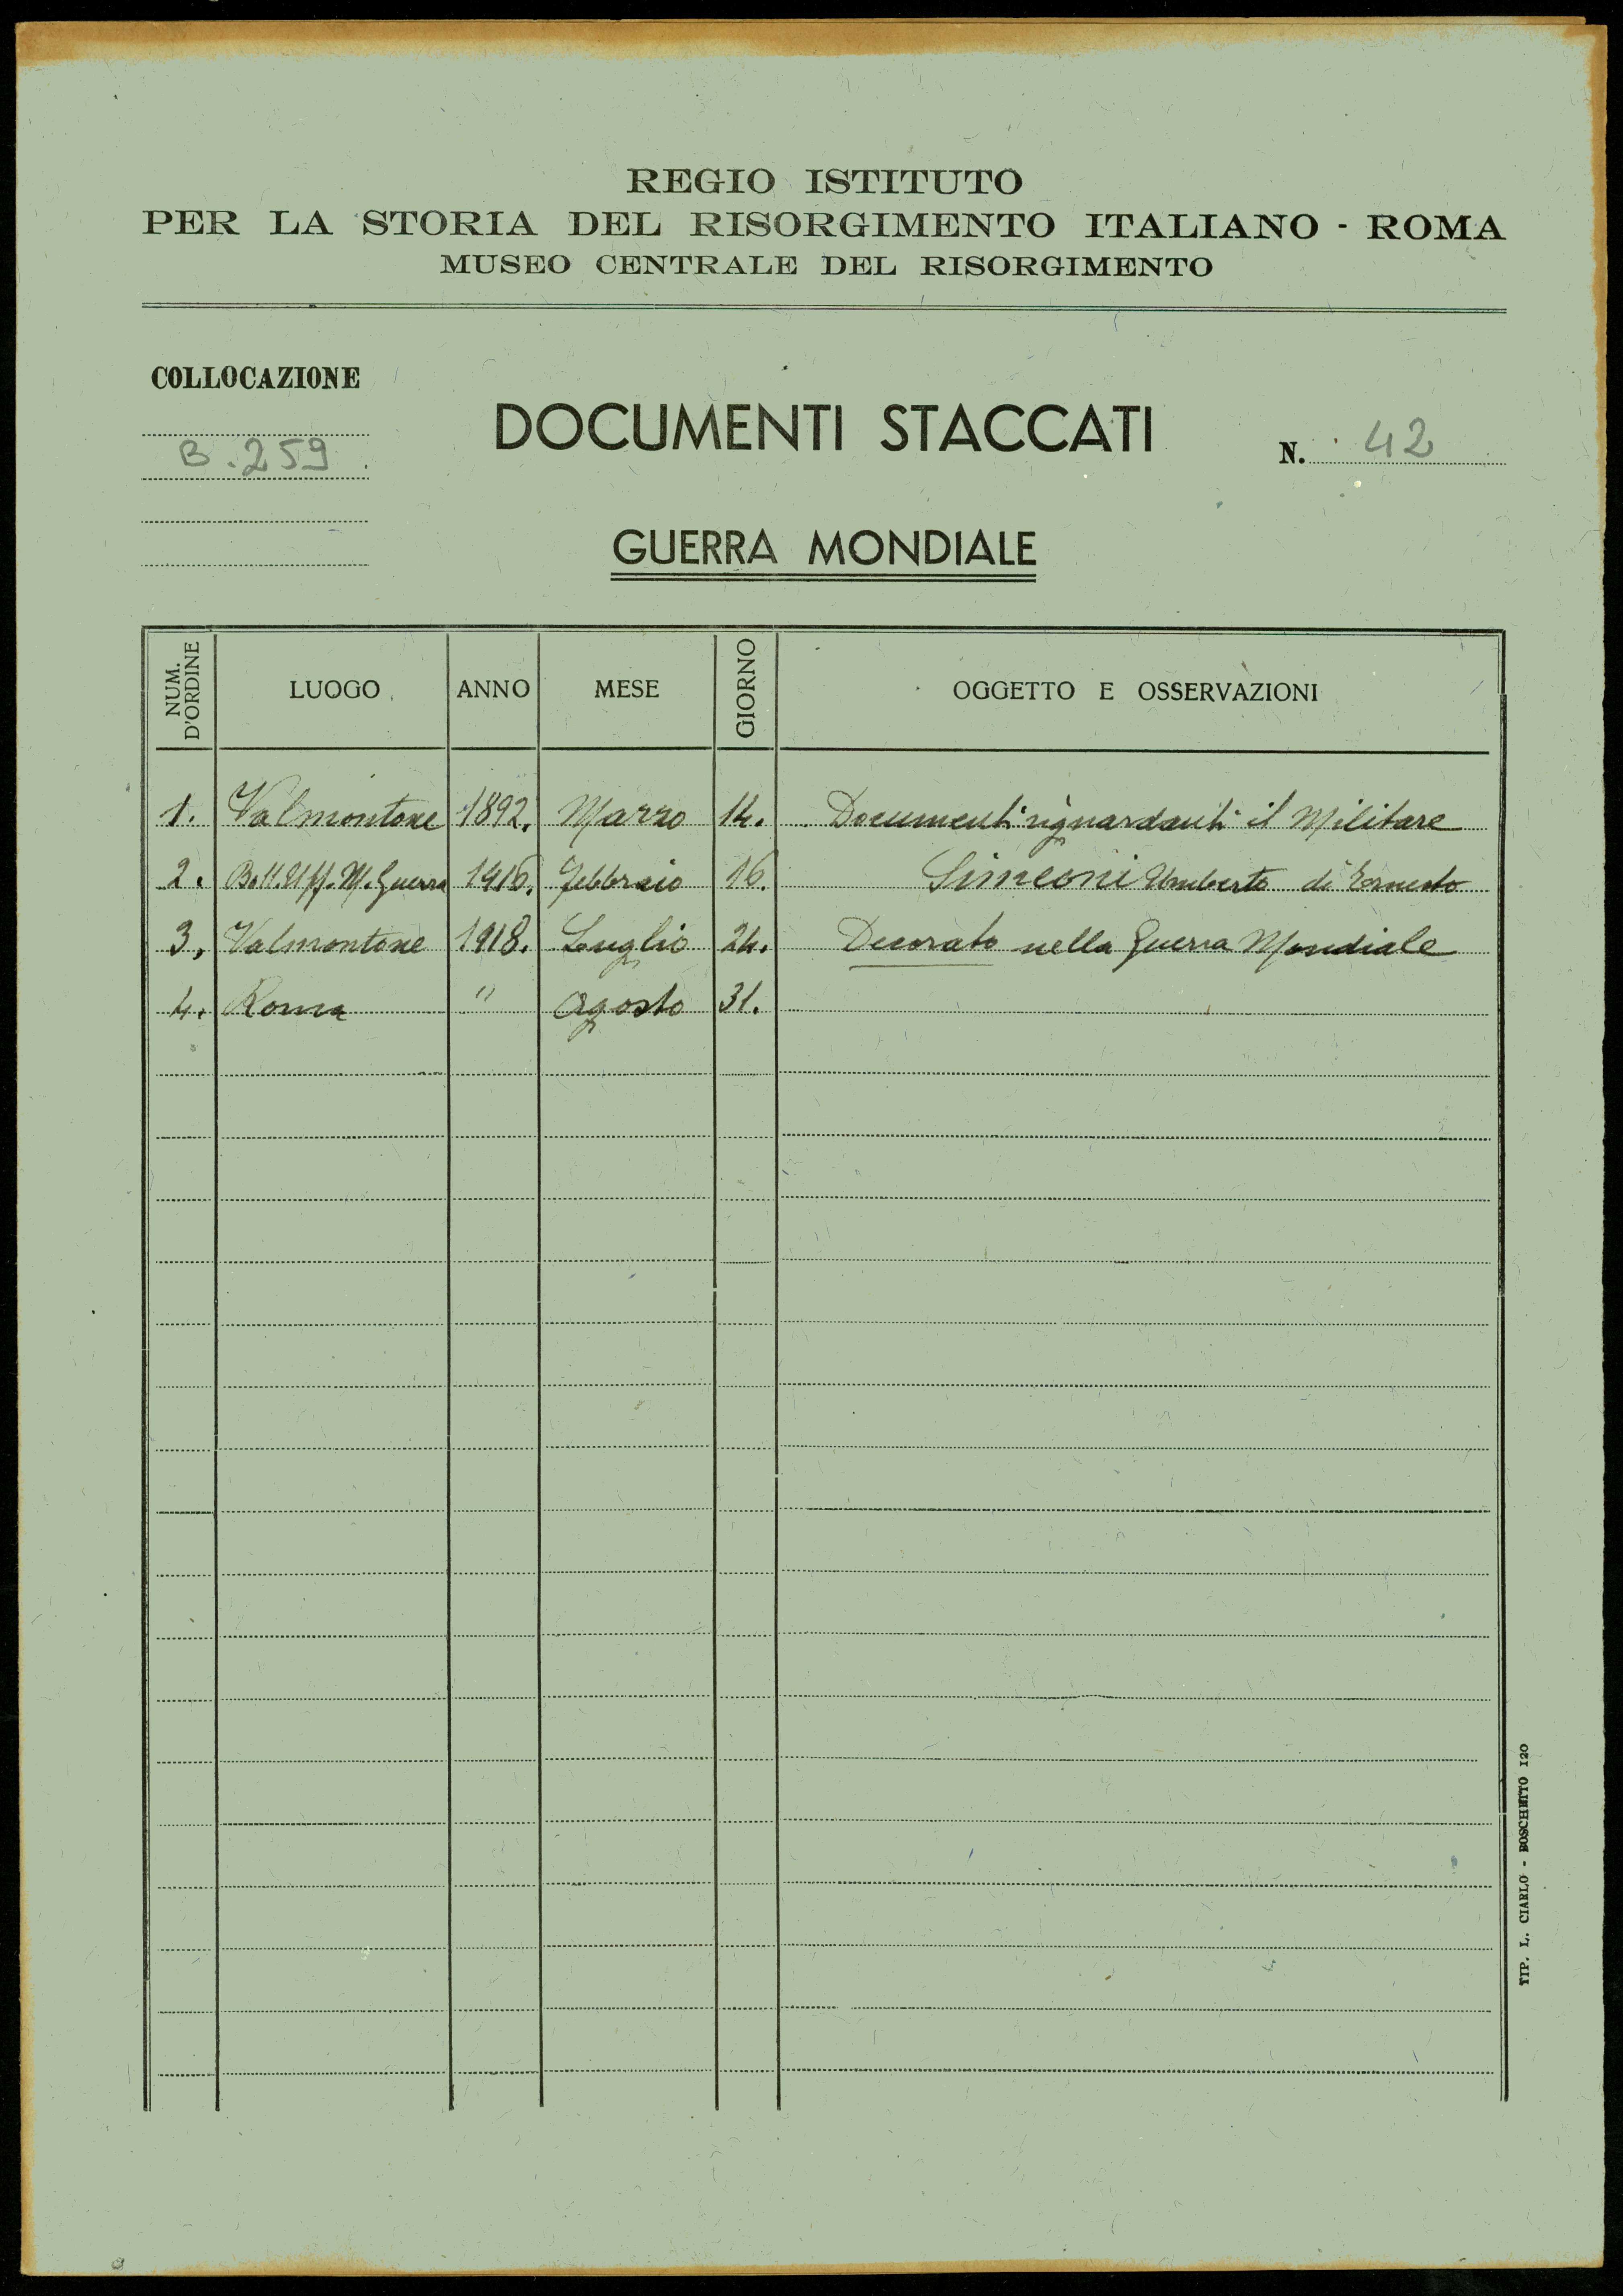 REGIO ISTITUTO
PER LA STORIA DEL RISORGIMENTO ITALIANO - ROMA
MUSEO CENTRALE DEL RISORGIMENTO
COLLOCAZIONE
B. 259
DOCUMENTI STACCATI
N. 42
GUERRA MONDIALE
NUM. D'ORDINE LUOGO ANNO MESE GIORNO OGGETTO E OSSERVAZIONI
1. Valmontone 1892. Marzo 14. Documenti riguardanti il Militare
2. Boll. Uff. M. Guerra 1916. Febbraio 16. Simeoni Umberto di Ernesto
3. Valmontone 1918. Luglio 24. Decorato nella Guerra Mondiale
4. Roma " Agosto 31.
TIP. L. CIARLO - BOSCHETTO 120